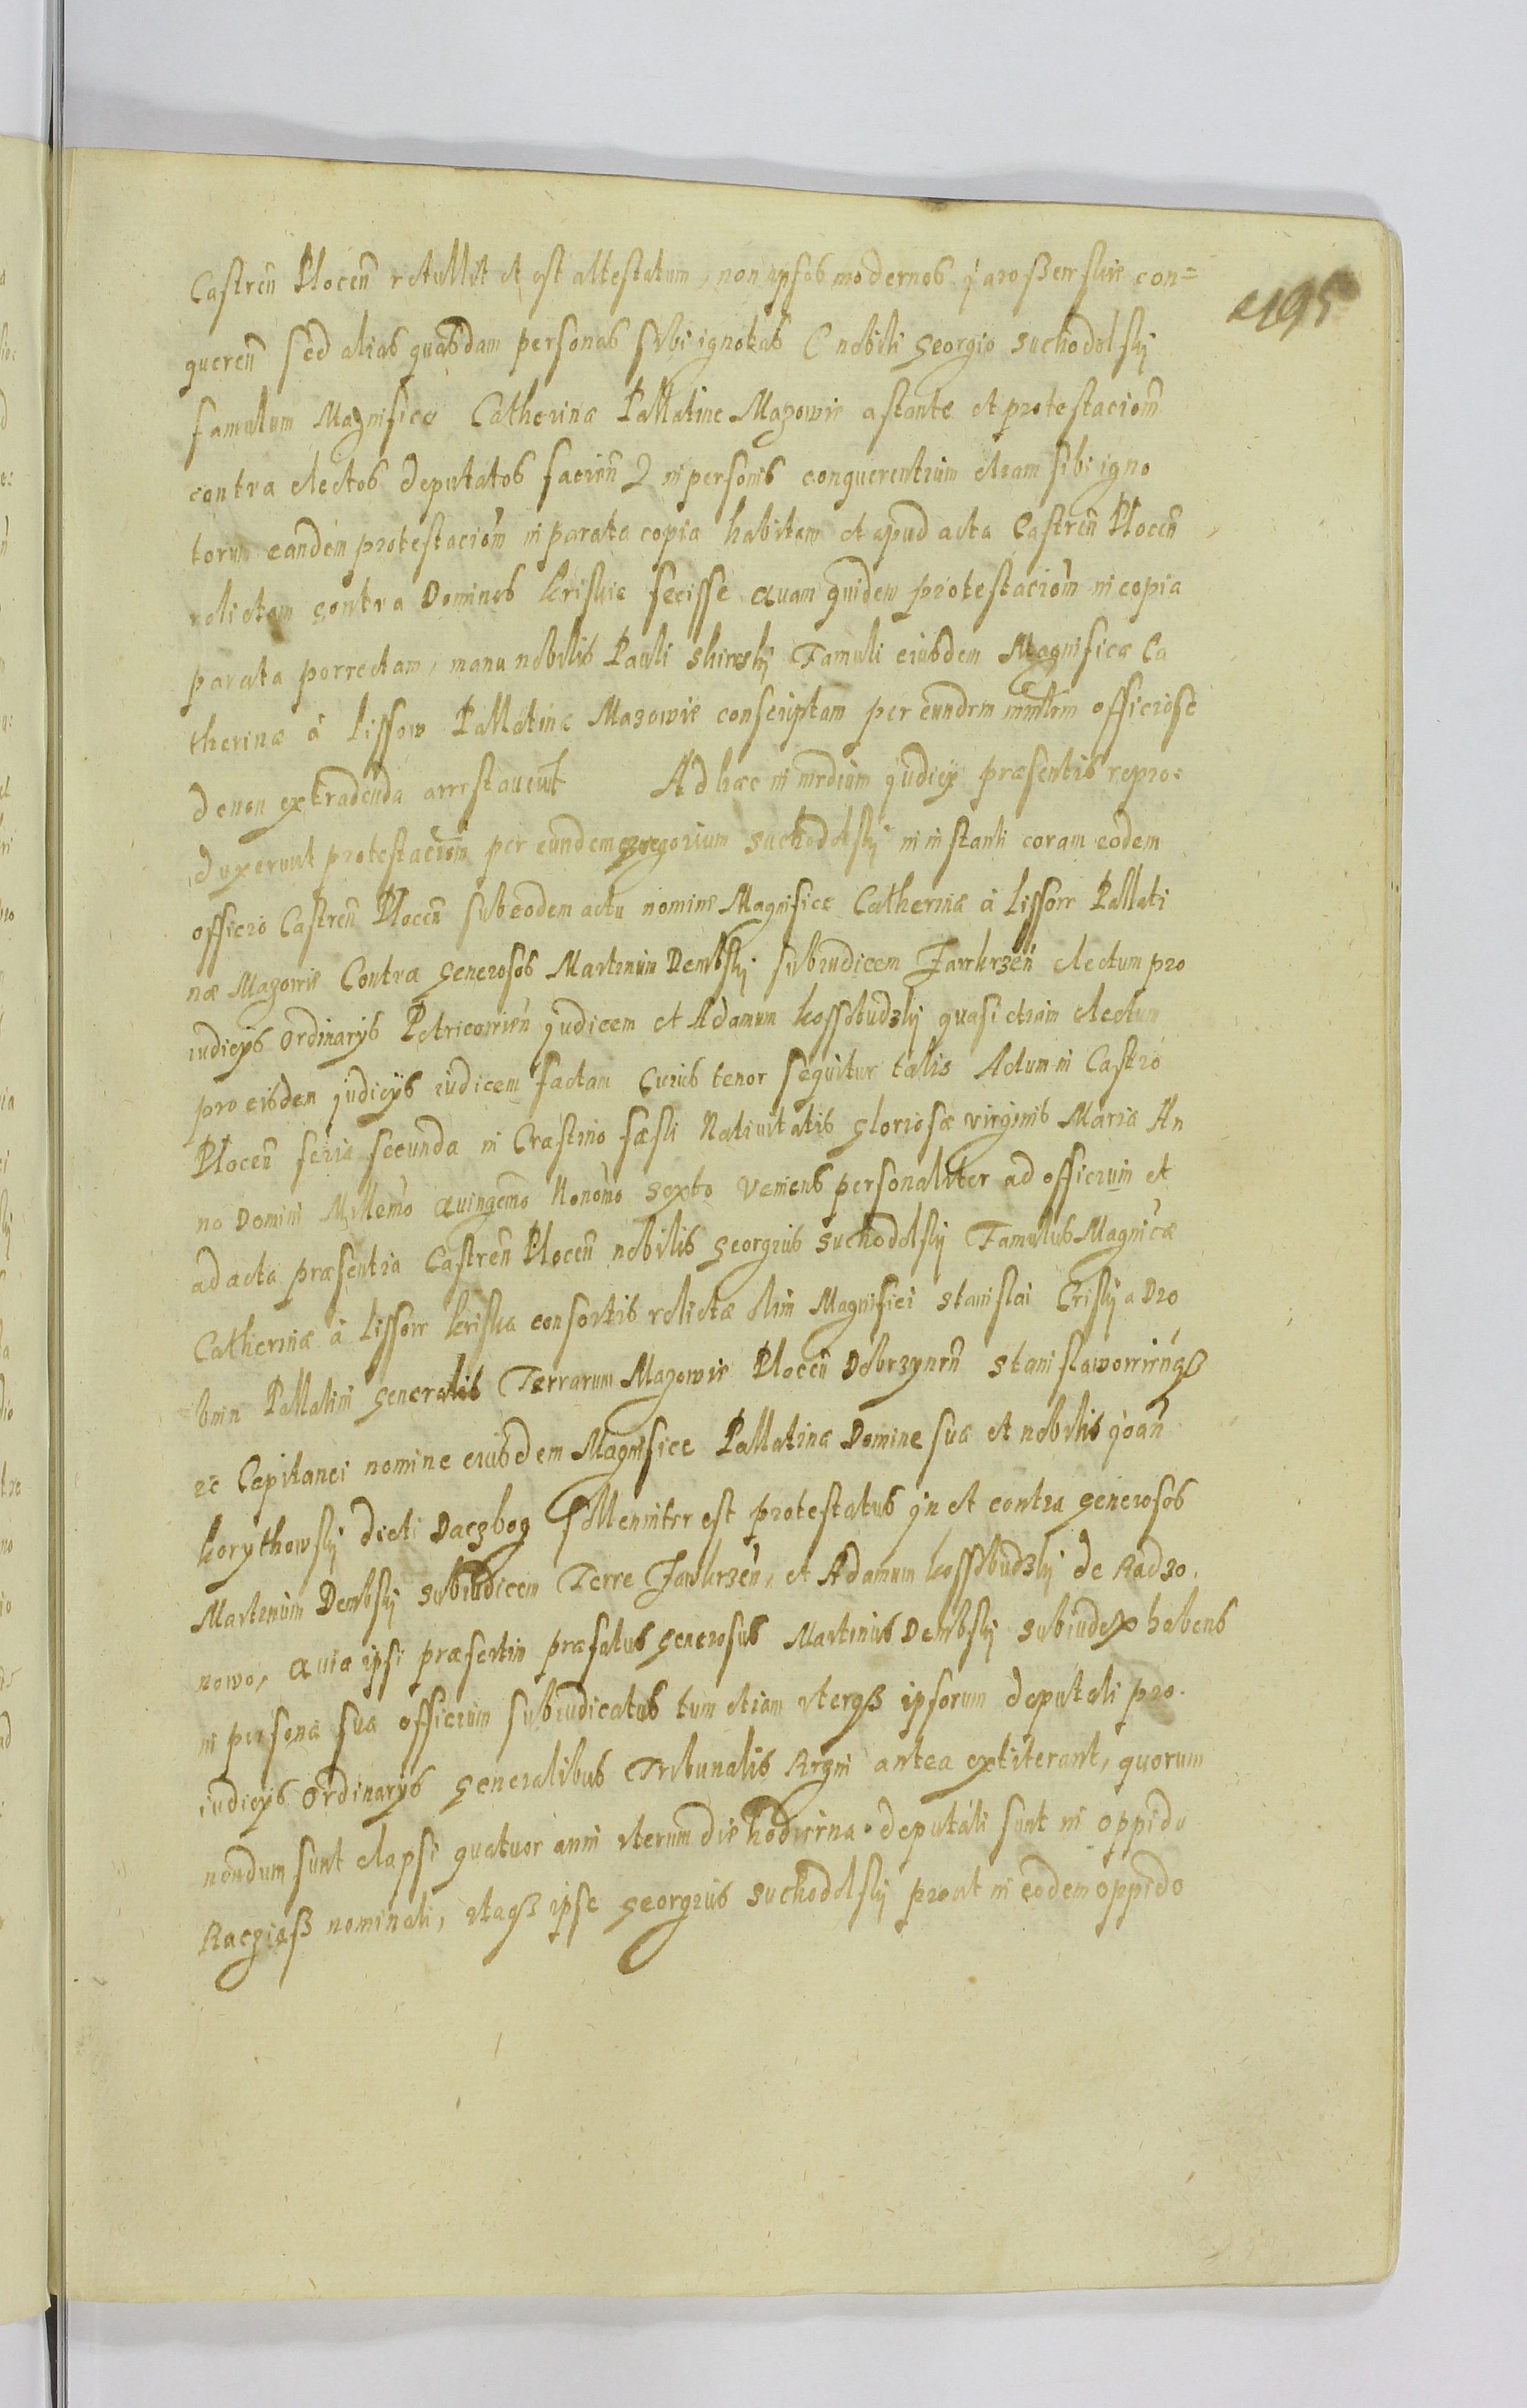 495
Castren̄ Plocen̄ retullit et est attestatum, non ipsos modernos Jarossewskie con=
queren̄ sed alias quasdam personas sibi ignotas (nobili Georgio Suchodolskÿ
famulum Magnificæ Catherinæ Pallatine Mazowie astante et protestaciom̄
contra electos deputatos facien̄) in personis conquerentium etiam sibi igno
torum eandem protestaciom̄ in parata copia habitam et apud acta Castren̄ Plocen̄
relictam contra Dominos kriskie fecisse Quam quidem protestaciom̄ in copia
parata porrectam, manu nobilis Pauli Skirskÿ Famuli eiusdem Magnificæ Ca
therinæ à Lissow Pallatinæ Mazowie conscriptam per eundem officiose
de non extradenda arrestauerūt Ad hæc in medium Judicÿ præsentis repro=
duxerunt protestaciom̄ per eundem Gregorium Suchodolskÿ in instanti coram eodem
officio Castren̄ Plocen̄ sub eodem actu nomine Magnificæ Catherinæ à Lissow Pallati
næ Mazowie Contra Generosos Martinum Dembskÿ subiudicem Zawkrzen̄ electum pro
iudicÿs ordinarÿs Petricowien̄ Judicem et Adamum kossobudzkÿ quasi etiam electum
pro eisdem Judicÿs iudicem factam Cuius tenor sequitur talis Actum in Castro
Plocen̄ feria secunda in Crastino fæsti Natiuitatis Gloriosæ virginis Mariæ An
no Domini Millem̄o Quingem̄o Nonom̄o Sexto Veniens personaliter ad officium et
ad acta præsentia Castren̄ Plocen̄ nobilis Georgius Suchodolskÿ Famulus Magnicæ
Catherinæ à Lissow kriska consortis relictæ olim Magnifici Stanislai Criskÿ a Dro
bnin Pallatini Generalis Terrarum Mazowie Plocen̄ Dobrzynen̄ Stanislawowienqß
zc Capitanei nomine eiusdem Magnifice Pallatinæ Domine suæ et nobilis Joan̄
korythowskÿ dicti Daczbog sollemniter est protestatus in et contra Generosos
Martinum Dembskÿ Subiudicem Terre Zawkrzen̄, et Adamum kossobudzkÿ de Radzo.
nowo, Quia ipsi præsertim præfatus Generosus Martinus Dembskÿ Subiudex habens
in persona sua officium subiudicatus tum etiam vterqß ipsorum deputati pro.
iudicÿs ordinarÿs Generalibus Tribunalis Regni antea extiterant, quorum
nondum sunt elapsi quatuor anni iterum die hodierna deputati sunt in oppido
Racziaß nominati, itaqß ipse Georgius Suchodolskÿ prout in eodem oppido